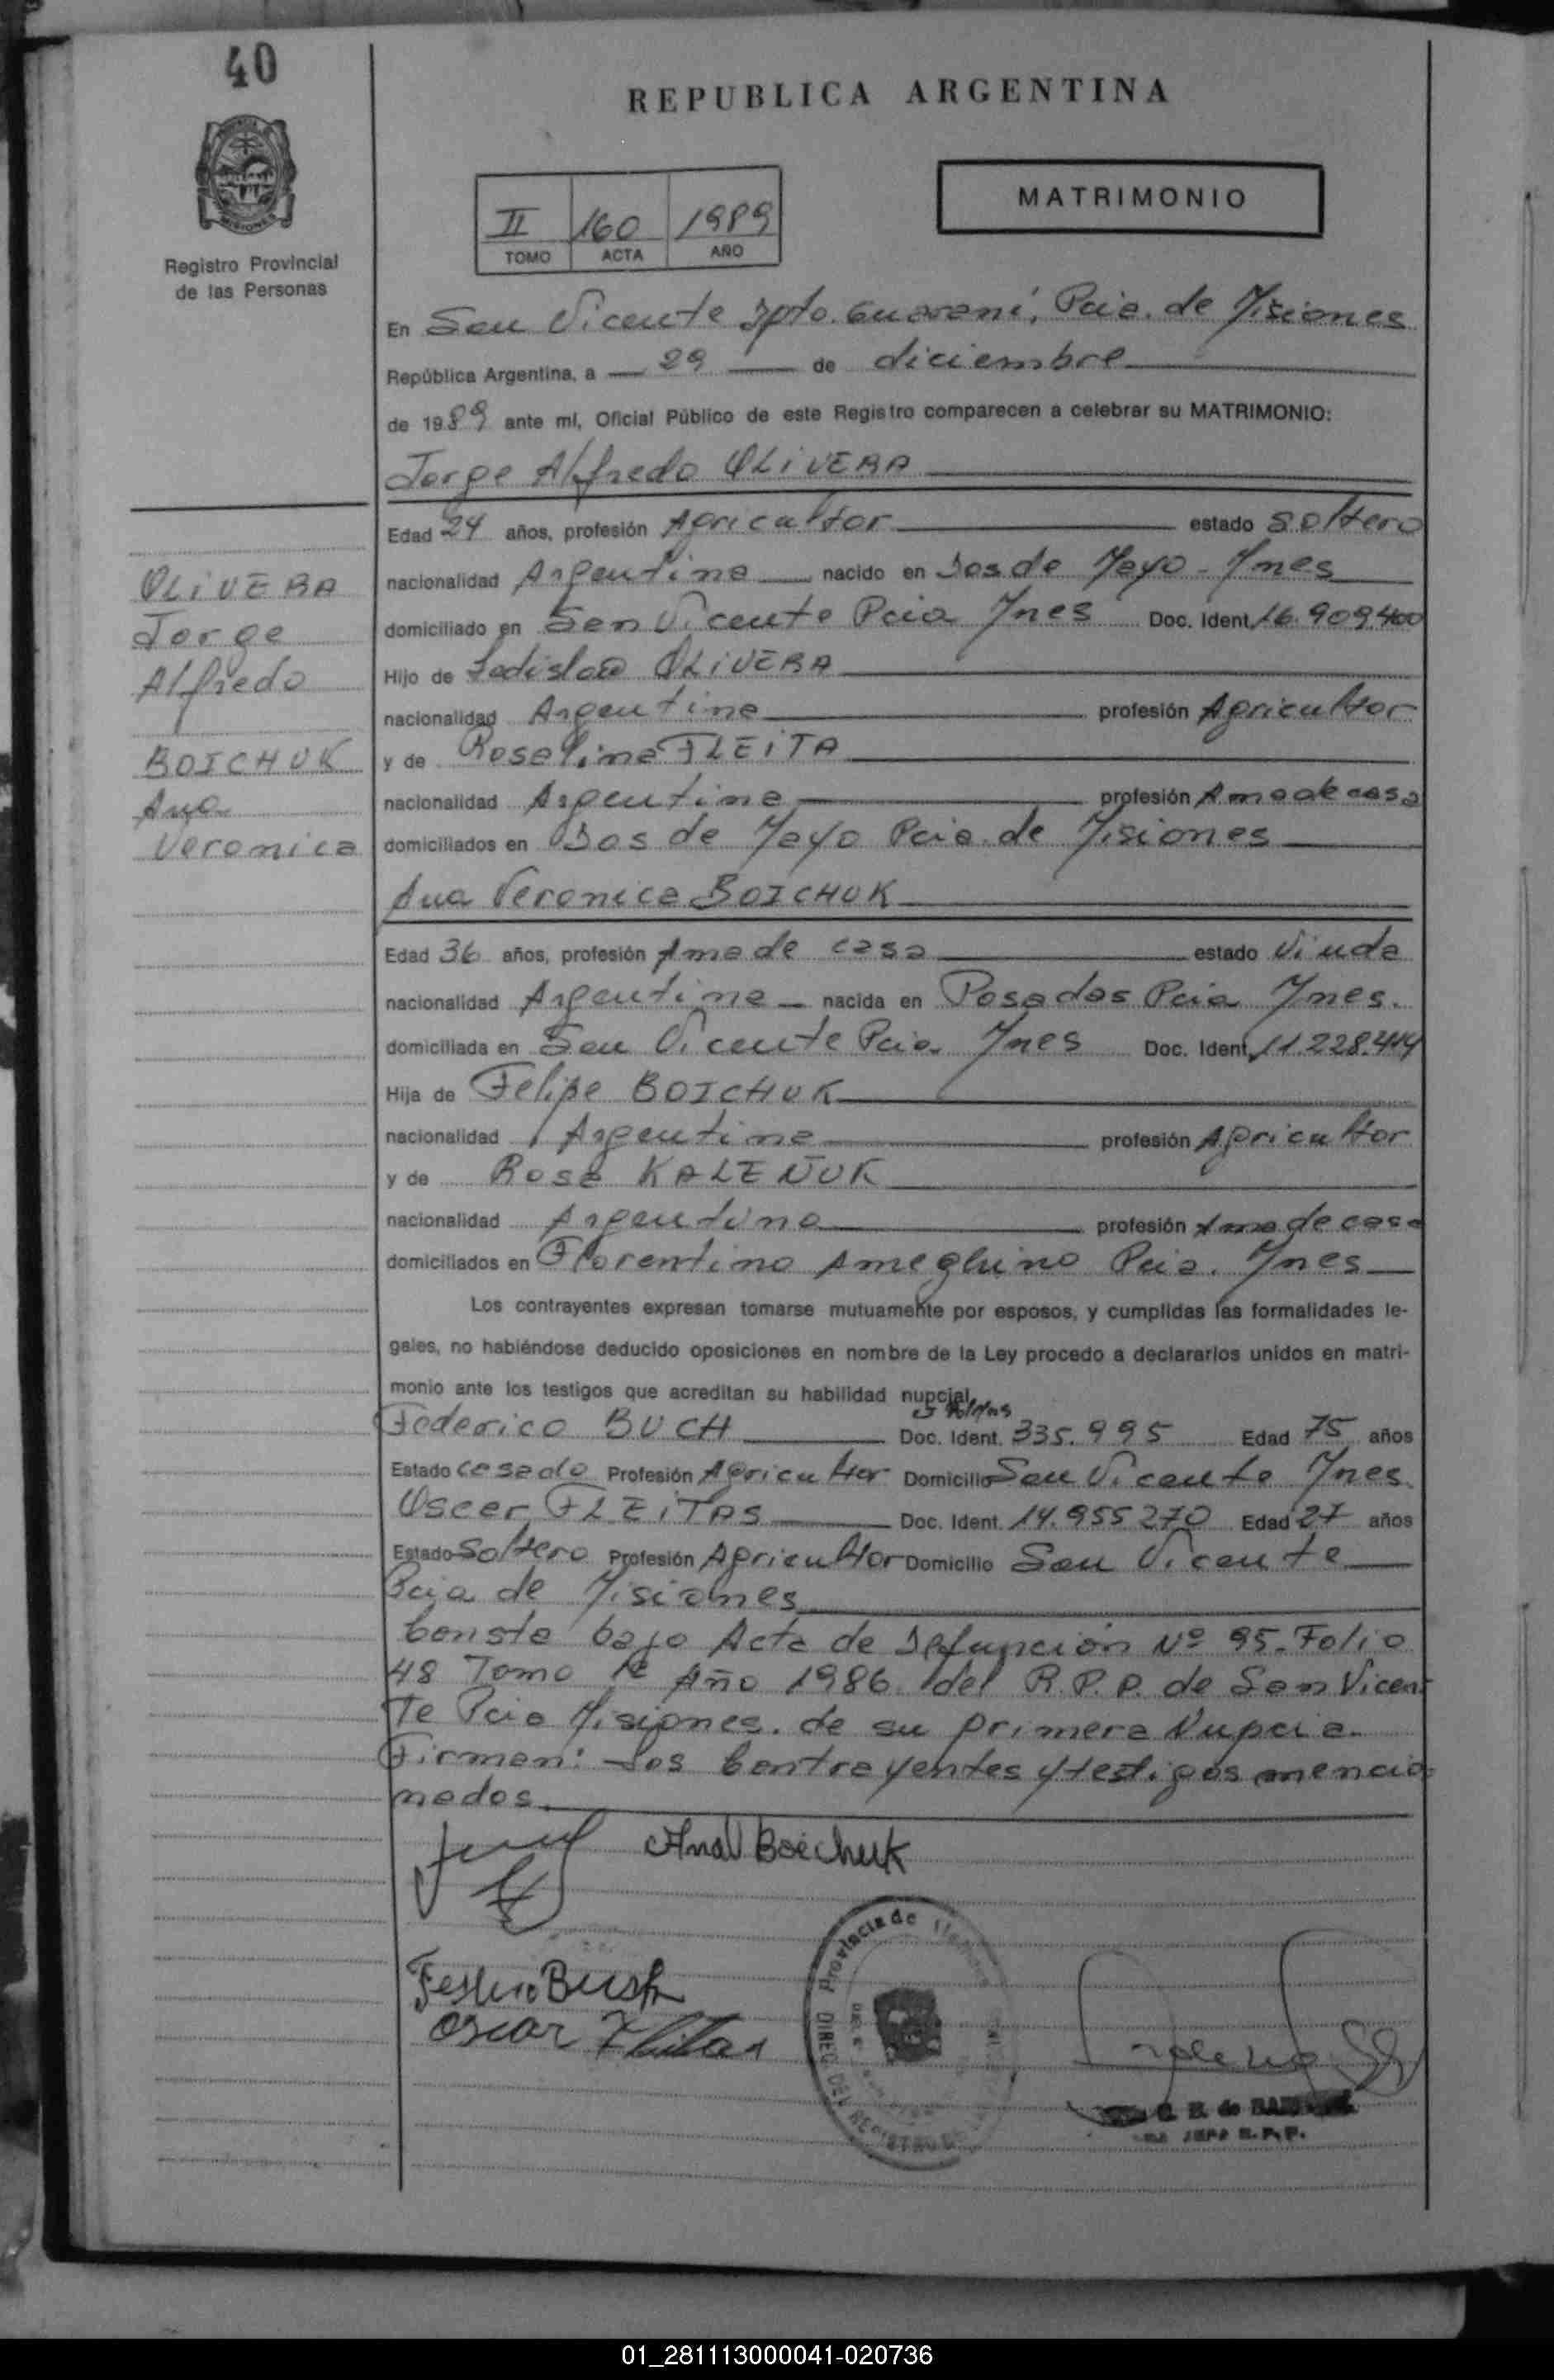 40
REPUBLICA ARGENTINA
Registro Provincial
de las Personas
II 160 1989
TOMO ACTA AÑO
MATRIMONIO
En San Vicente Dpto. Guaraní, Pcia. de Misiones
República Argentina, a 29 de diciembre
de 1989 ante mí, Oficial Público de este Registro comparecen a celebrar su MATRIMONIO:
Jorge Alfredo OLIVERA
Edad 24 años, profesión Agricultor estado soltero
nacionalidad Argentina nacido en Dos de Mayo - Mnes
domiciliado en San Vicente Pcia Mnes Doc. Ident. 16.909.400
Hijo de Ladislao OLIVERA
nacionalidad Argentina profesión Agricultor
y de Roselina FLEITA
nacionalidad Argentina profesión Ama de casa
domiciliados en Dos de Mayo Pcia. de Misiones
OLIVERA
Jorge
Alfredo
BOICHUK
Ana
Veronica
Ana Veronica BOICHUK
Edad 36 años, profesión Ama de casa estado Viuda
nacionalidad Argentina nacida en Posadas Pcia Mnes.
domiciliada en San Vicente Pcia. Mnes Doc. Ident. 11.228.414
Hija de Felipe BOICHUK
nacionalidad Argentina profesión Agricultor
y de Rosa KALEÑUK
nacionalidad Argentina profesión Ama de casa
domiciliados en Florentino Ameghino Pcia. Mnes
Los contrayentes expresan tomarse mutuamente por esposos, y cumplidas las formalidades le-
gales, no habiéndose deducido oposiciones en nombre de la Ley procedo a declararlos unidos en matri-
monio ante los testigos que acreditan su habilidad nupcial
Federico BUCH Doc. Ident. 335.995 Edad 75 años
Estado casado Profesión Agricultor Domicilio San Vicente Mnes.
Oscar FLEITAS Doc. Ident. 14.955270 Edad 27 años
Estado Soltero Profesión Agricultor Domicilio San Vicente
Pcia de Misiones
Consta bajo Acta de Defunción Nº 95-Folio
48 Tomo Iº Año 1986 del R.P.P. de San Vicen-
te Pcia Misiones. de su primera Nupcia.
Firman: Los Contrayentes y testigos mencio
nados.
Ana V Boichuk
Oscar Fleitas
Provincia de
DIREC. DEL REGISTRO
01_281113000041-020736